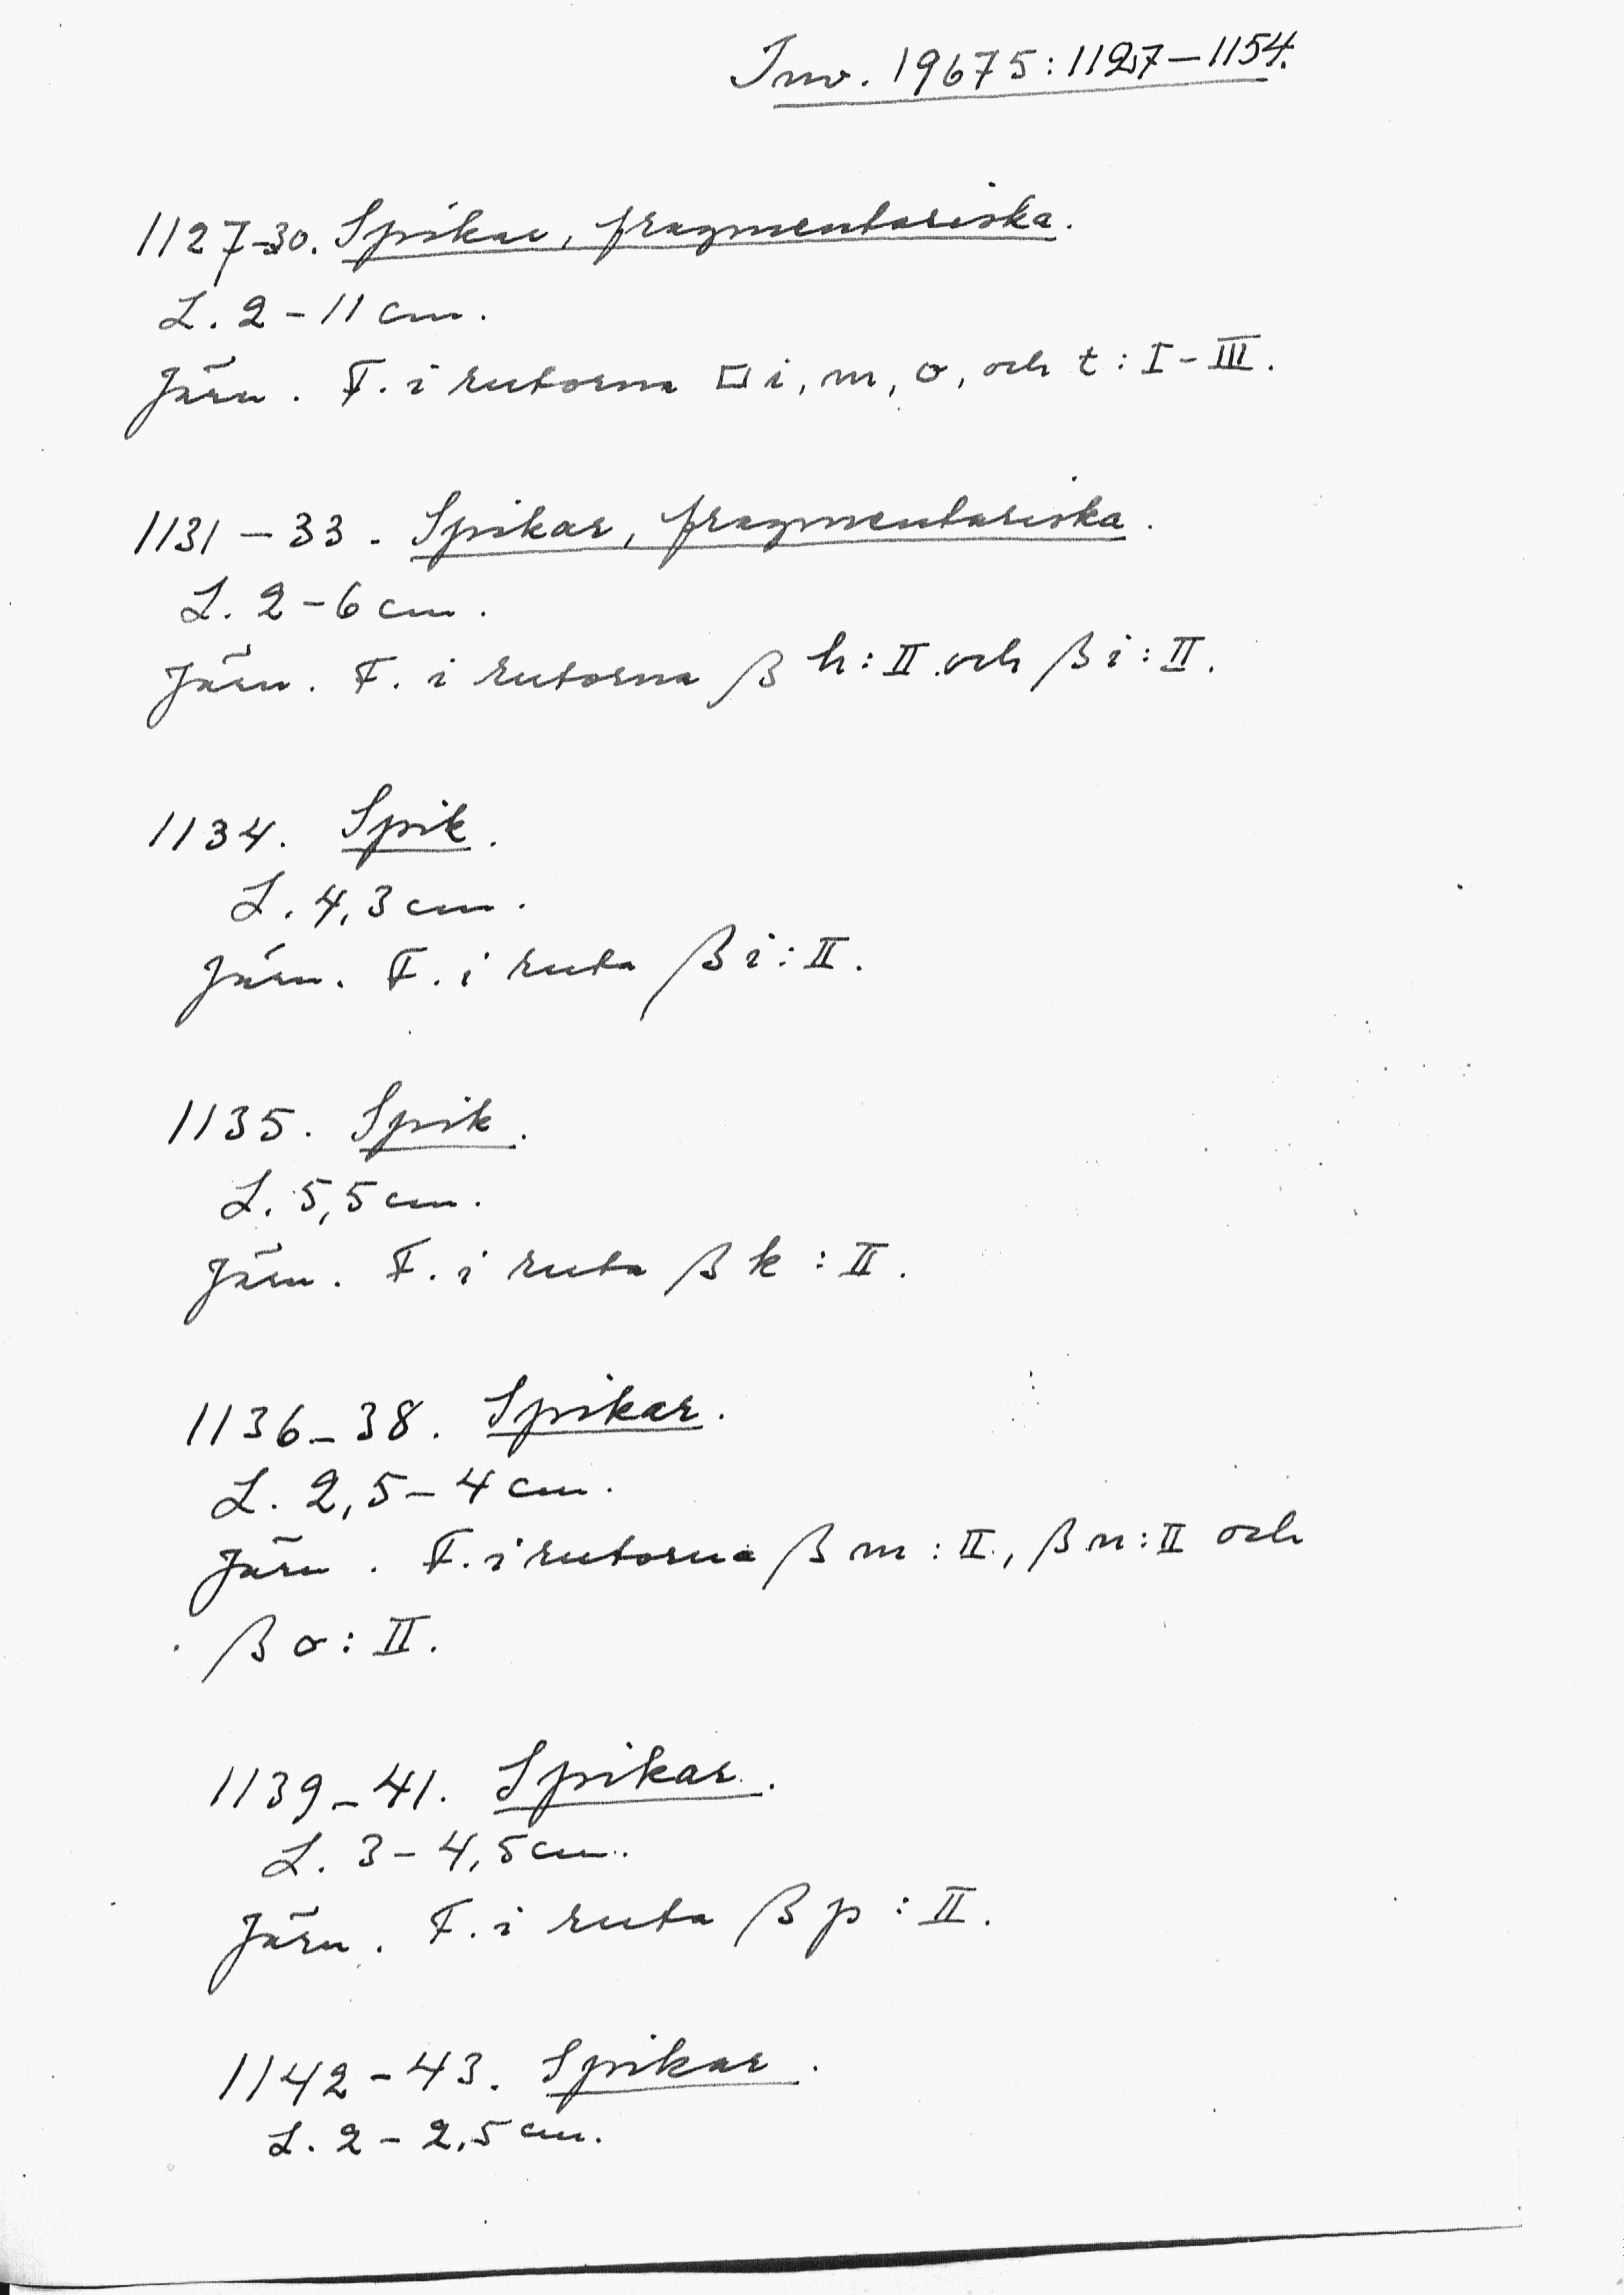 Inv. 19675:1127-1154.
1127-30. Spikar, fragmentariska.
L. 2-11 cm.
Järn. F. i rutorna □ i, m, o, och t : I-III.
1131-33. Spikar, fragmentariska.
L. 2-6 cm.
Järn. F. i rutorna β h : II och β i : II.
1134. Spik.
L. 4,3 cm.
Järn. F. i ruta β i : II.
1135. Spik.
L. 5,5 cm.
Järn. F. i ruta β k : II.
1136-38. Spikar.
L. 2,5-4 cm.
Järn. F. i rutorna β m : II, β n : II och
β o : II.
1139-41. Spikar.
L. 3-4,5 cm.
Järn. F. i ruta β p : II.
1142-43. Spikar.
L. 2-2,5 cm.